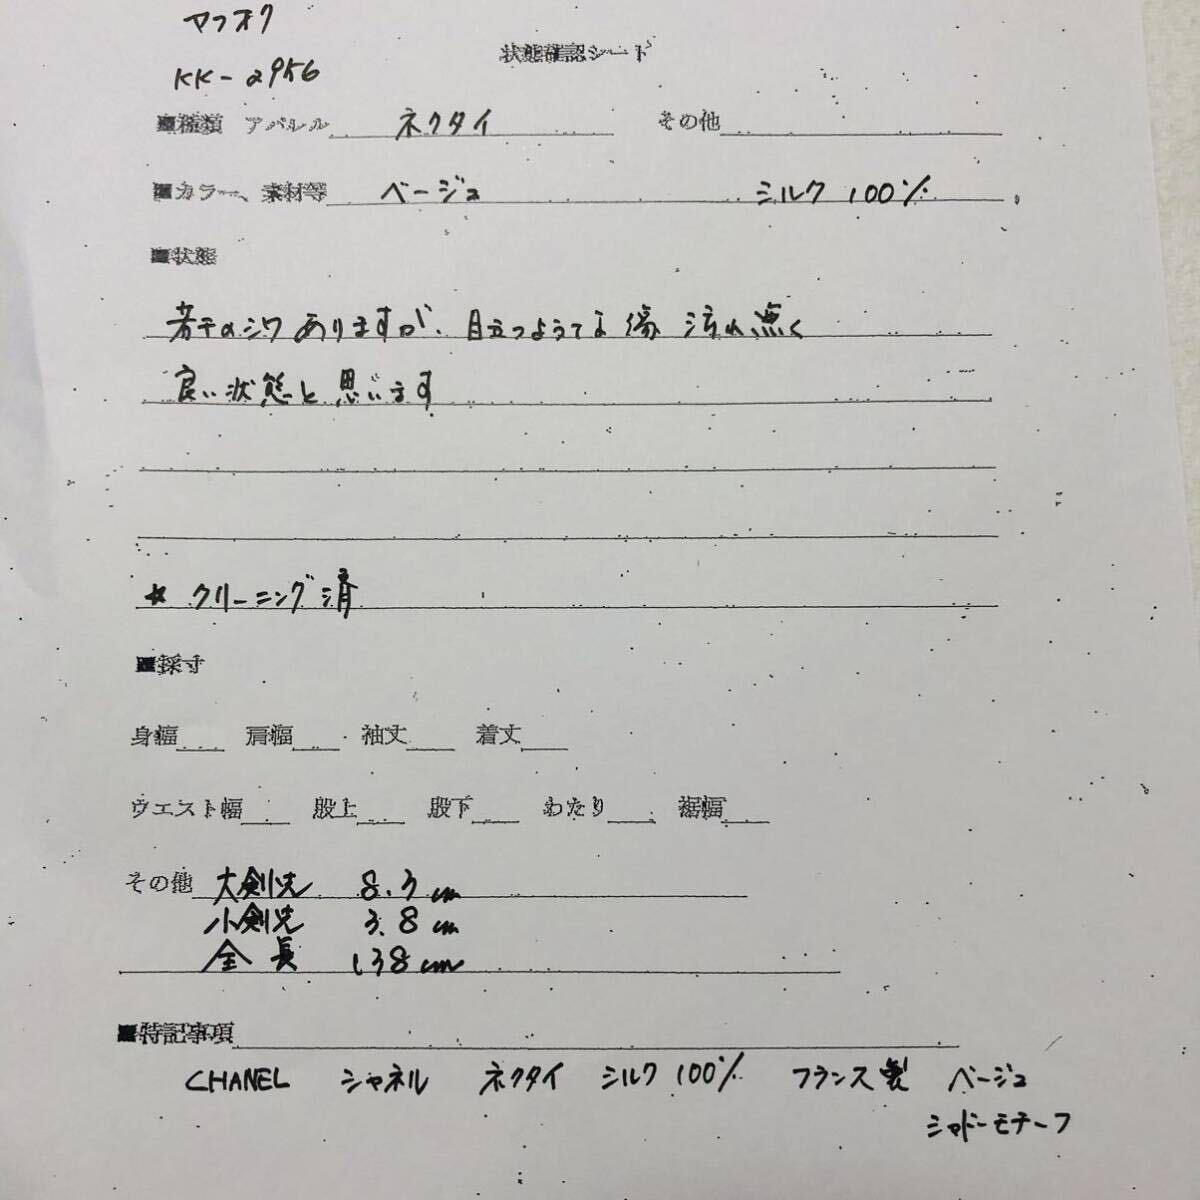 ヤフオク
状態確認シート
KK-2956
■種類 アパレル ネクタイ その他
■カラー、素材等 ベージュ シルク 100%
■状態
若干のシワありますが、目立つような傷 汚れ無く
良い状態と思います
☆ クリーニング済
■採寸
身幅 肩幅 袖丈 着丈
ウエスト幅 股上 股下 わたり 裾幅
その他 大剣先 8.3cm
小剣先 3.8cm
全長 138cm
■特記事項
CHANEL シャネル ネクタイ シルク 100% フランス製 ベージュ
シャドーモチーフ